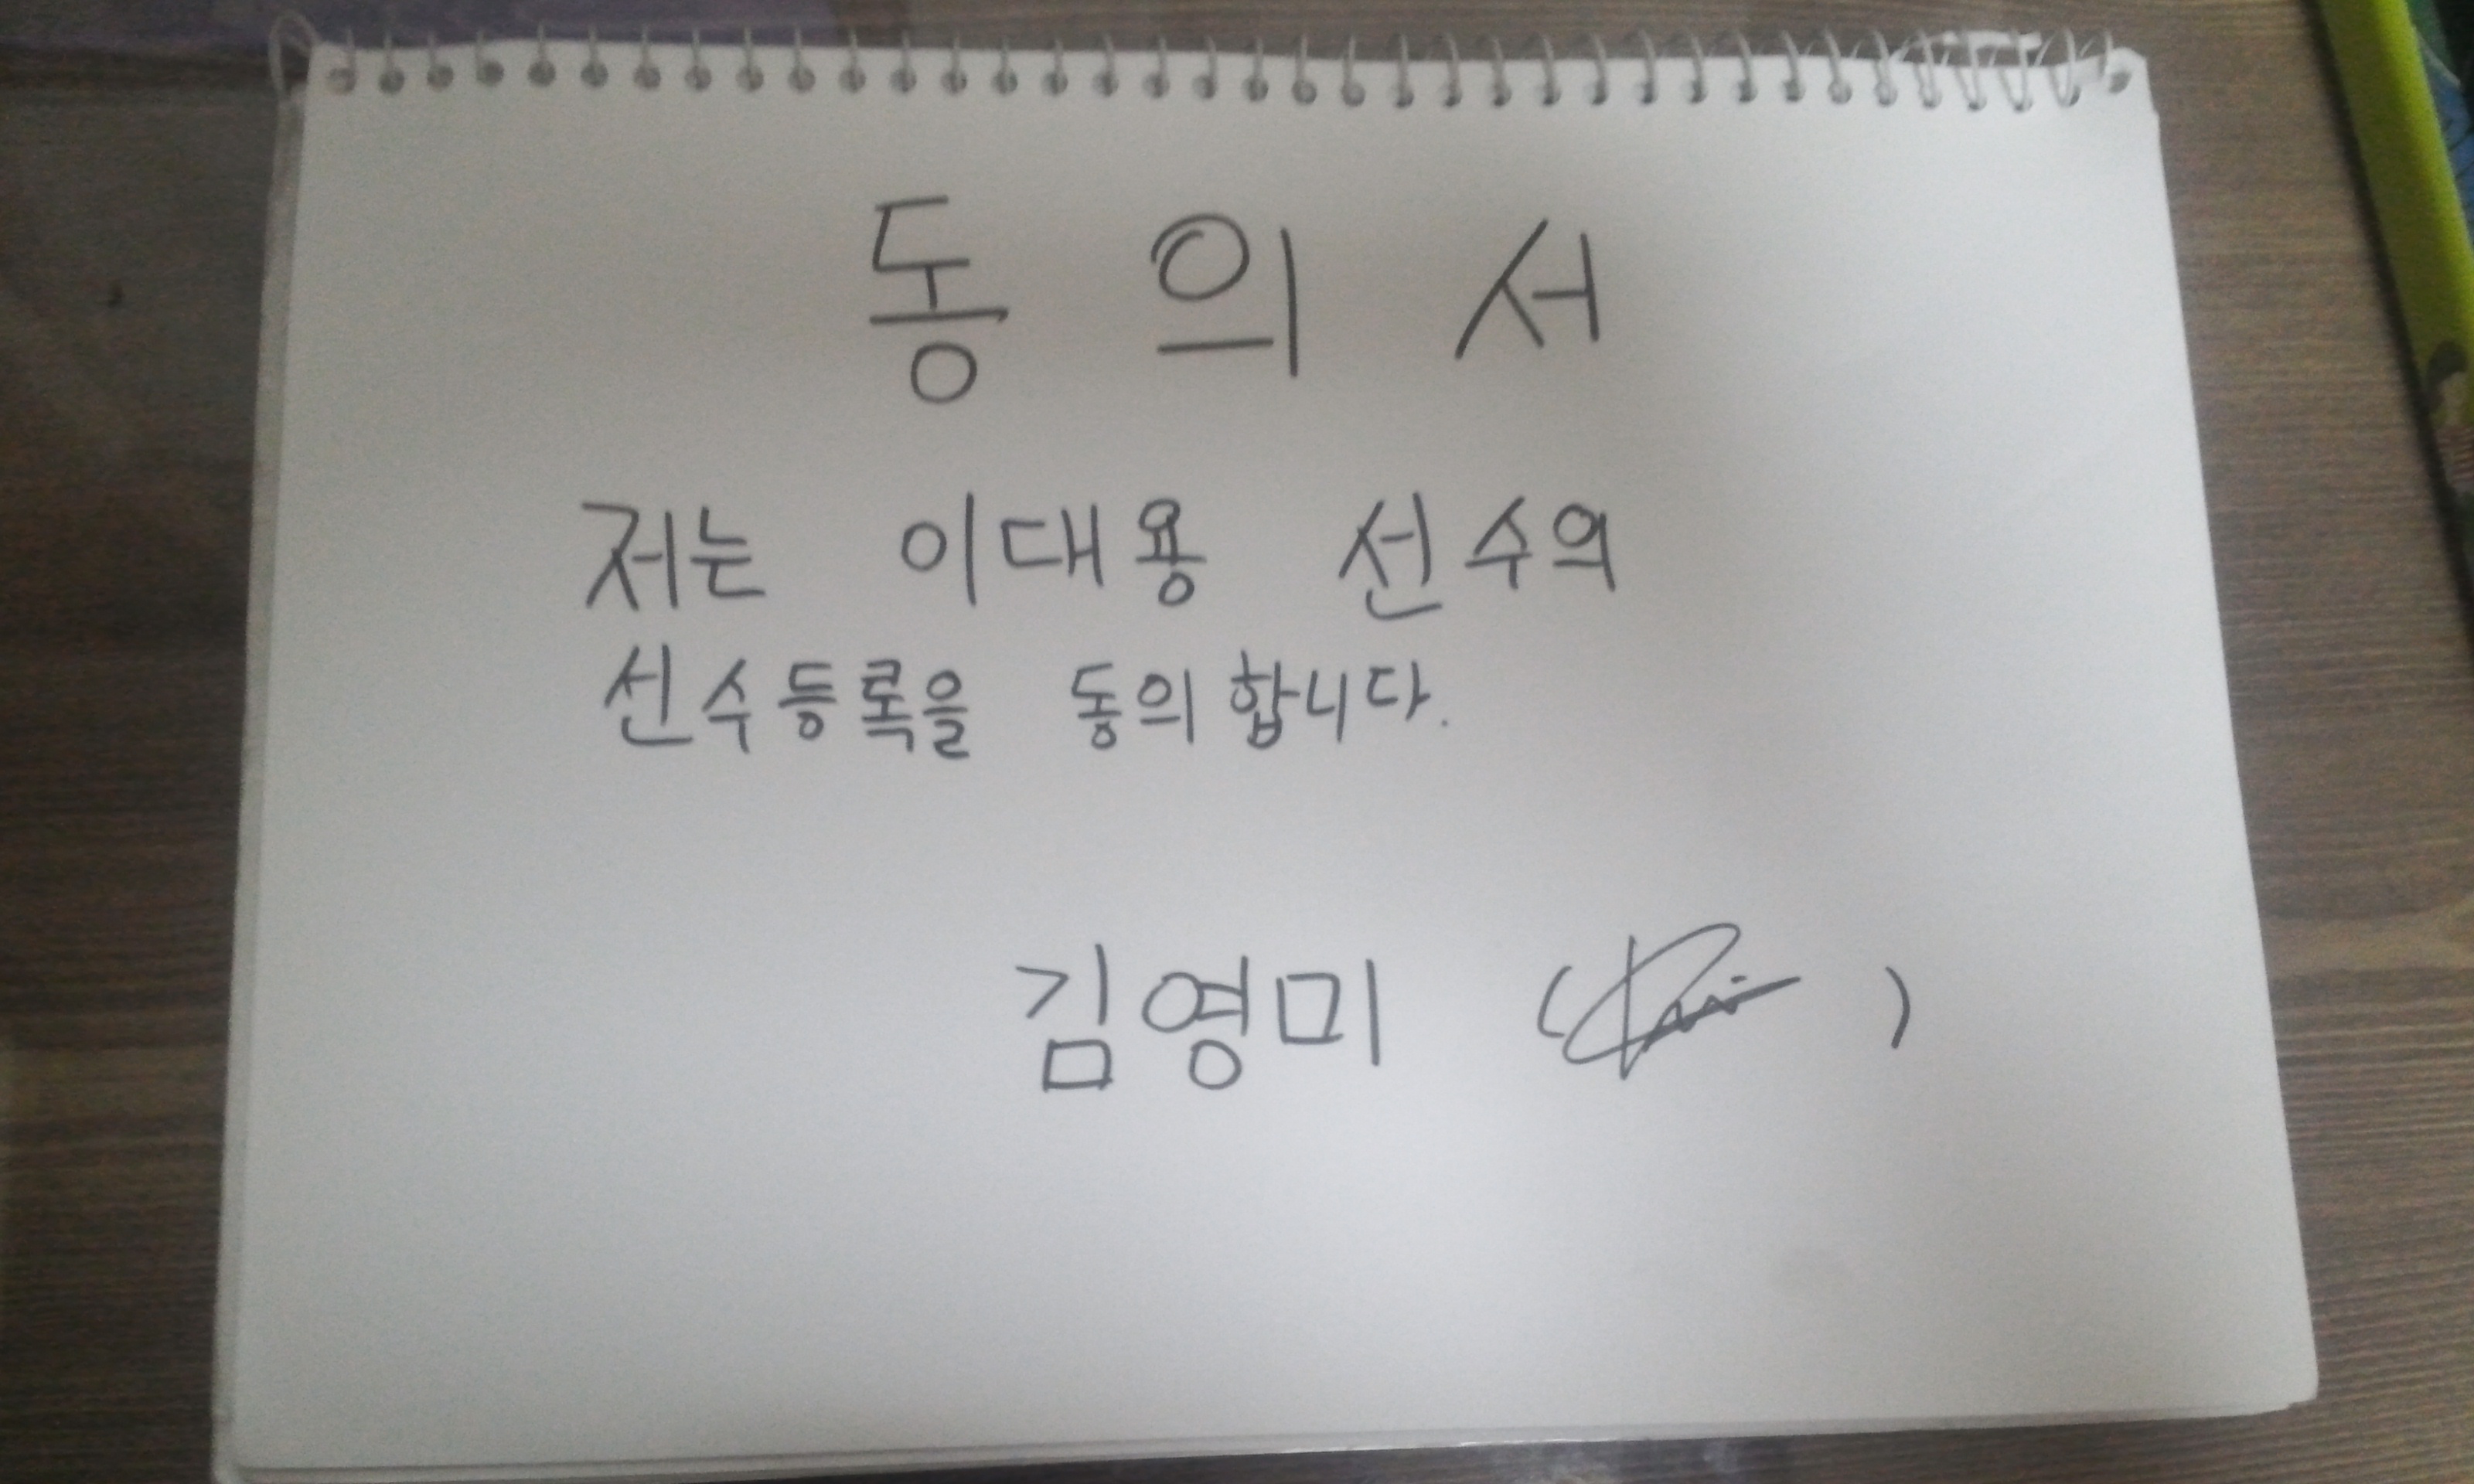 동 의 서
저는 이대용 선수의
선수등록을 동의합니다.
김영미 ( )